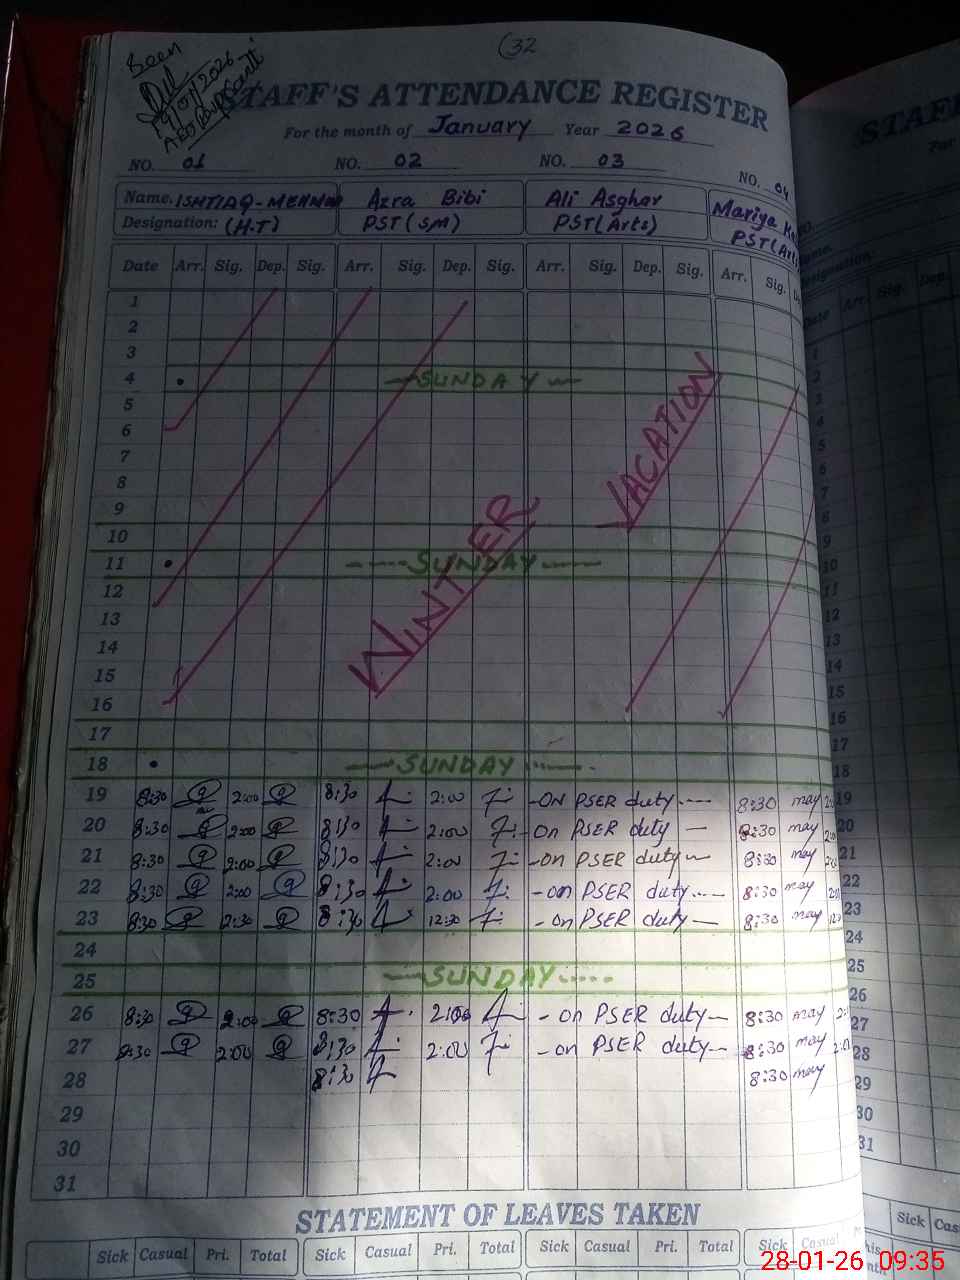 (32
Seen
STAFF'S ATTENDANCE REGISTER
For the month of January Year 2026
NO. 01 NO. 02 NO. 03 NO. 04
Name. ISHTIAQ-MEHMOOD Azra Bibi Ali Asghar Mariya
Designation: (H.T) PST(SM) PST(Arts) PST(Arts
Date Arr. Sig. Dep. Sig. Arr. Sig. Dep. Sig. Arr. Sig. Dep. Sig. Arr. Sig.
1
2
3
4 SUNDAY
5
6
7
8
9
10
11 SUNDAY
12
13
14
15
16
WINTER VACATION
17
18 SUNDAY
19 8:30 2:00 8:30 2:00 -ON PSER duty 8:30 may
20 8:30 2:00 8:30 2:00 - On PSER duty - 8:30 may
21 8:30 2:00 8:30 2:00 - on PSER duty 8:30 may
22 8:30 2:00 8:30 2:00 - on PSER duty 8:30 may
23 8:30 2:30 8:30 12:30 - on PSER duty - 8:30 may
24
25 SUNDAY
26 8:30 2:00 8:30 2:00 - on PSER duty - 8:30 may
27 8:30 2:00 8:30 2:00 - on PSER duty 8:30 may
28 8:30 8:30 may
29
30
31
STATEMENT OF LEAVES TAKEN
Sick Casual Pri. Total Sick Casual Pri. Total Sick Casual Pri. Total Sick Casual Pri.
STAF
For
Date Arr. Sig. Dep.
1
2
3
4
5
6
7
8
9
10
11
12
13
14
15
16
17
18
19
20
21
22
23
24
25
26
27
28
29
30
31
Sick Cas
28-01-26 09:35